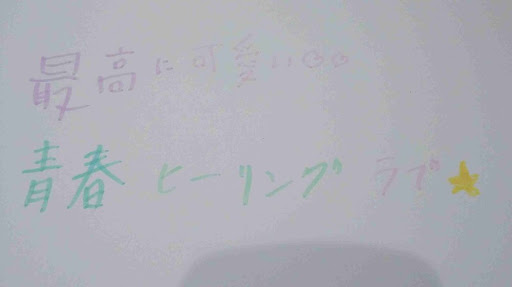 最高に可愛い○○
青春ヒーリングラブ★